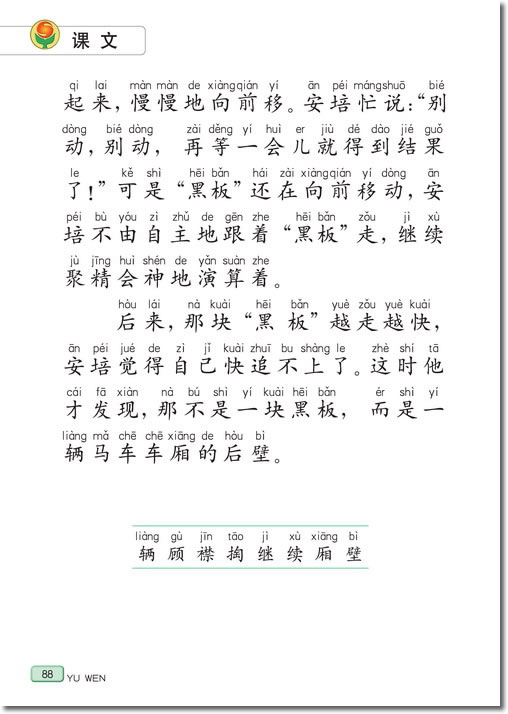 课文
qi lai màn màn de xiàngqián yí ān péi mángshuō bié
起来，慢慢地向前移。安培忙说：“别
dòng bié dòng zài děng yí huì er jiù dé dào jié guǒ
动，别动，再等一会儿就得到结果
le kě shì hēi bǎn hái zài xiàngqián yí dòng ān
了！”可是“黑板”还在向前移动，安
péi bù yóu zì zhǔ de gēn zhe hēi bǎn zǒu jì xù
培不由自主地跟着“黑板”走，继续
jù jīng huì shén de yǎn suàn zhe
聚精会神地演算着。
hòu lái nà kuài hēi bǎn yuè zǒu yuè kuài
后来，那块“黑板”越走越快，
ān péi jué de zì jǐ kuài zhuī bu shàng le zhè shí tā
安培觉得自己快追不上了。这时他
cái fā xiàn nà bú shì yí kuài hēi bǎn ér shì yí
才发现，那不是一块黑板，而是一
liàng mǎ chē chē xiāng de hòu bì
辆马车车厢的后壁。
liàng gù jīn tāo jì xù xiāng bì
辆顾襟掏继续厢壁
88 YU WEN